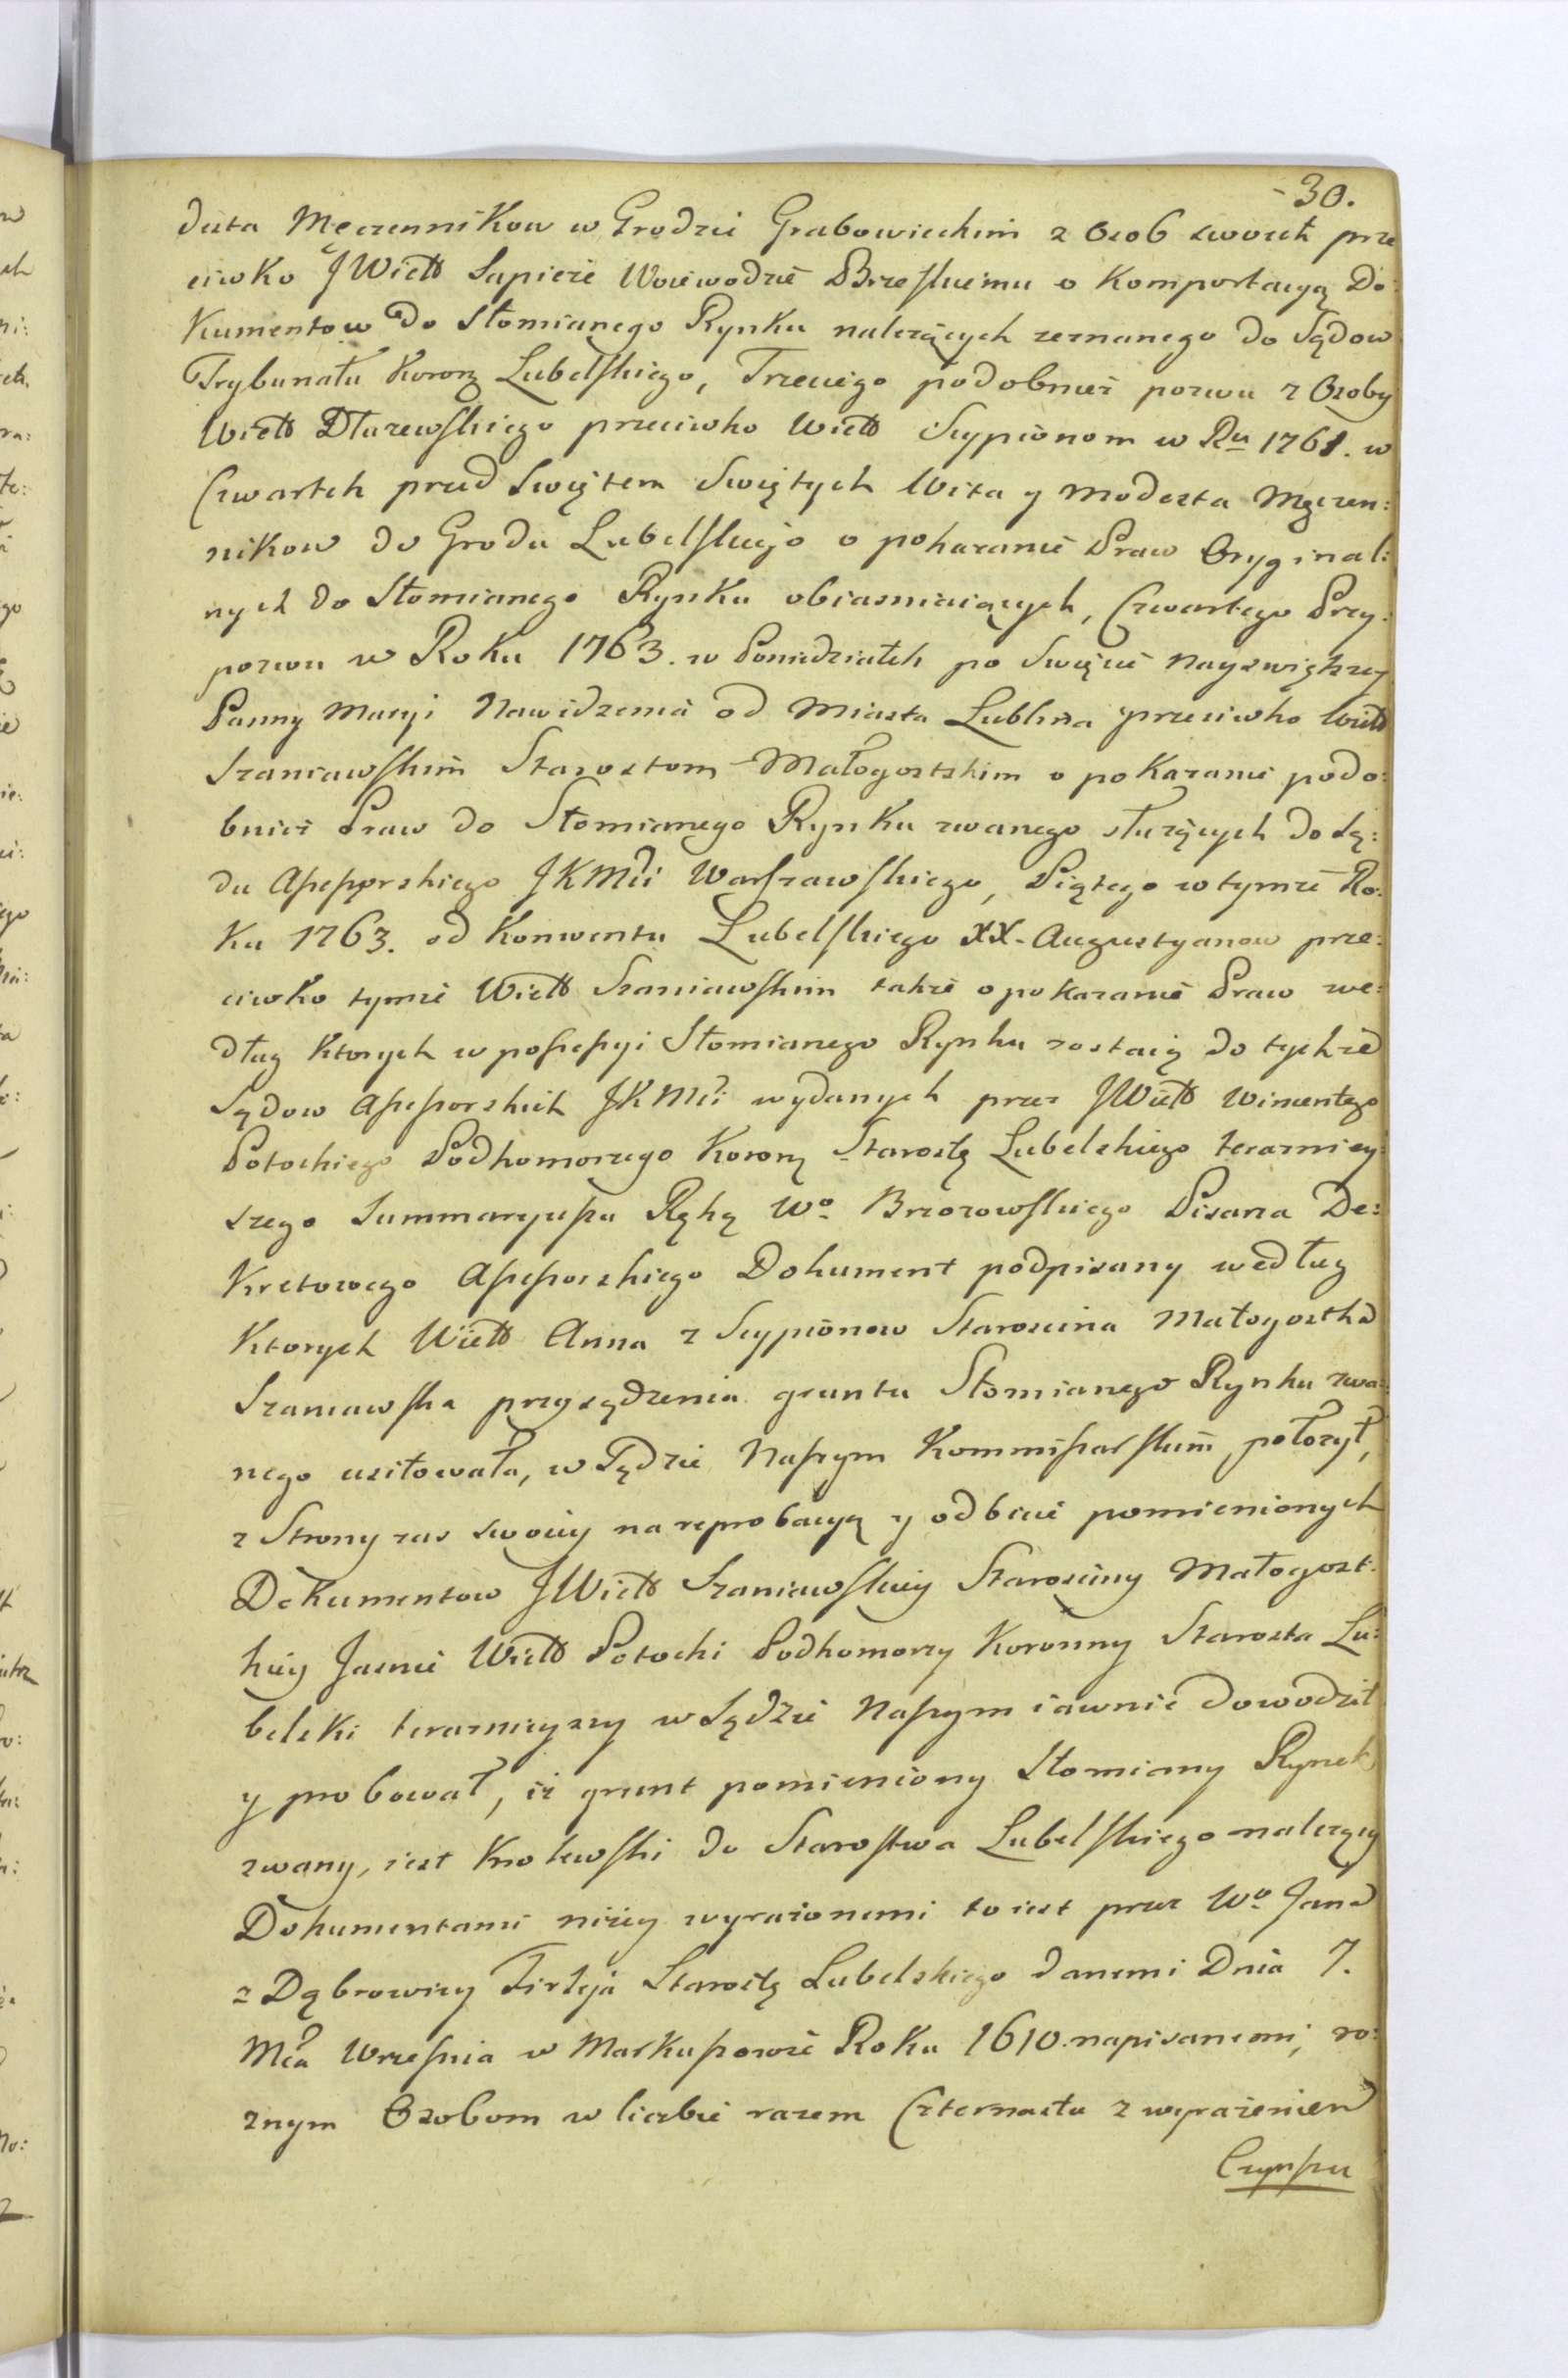 30.
desta Męczennikow w Grodzie Grabowieckim z Osob swoich prze
ciwko JWielb Sapieże Woiewodzie Brzeskiemu o Komportacyą Do:
kumentow do Słomianego Rynku należących zeznanego do Sądow
Trybunału Koron: Lubelskiego, Trzeciego podobnież pozwu z Osoby
Wielb Dłużewskiego przeciwko Wielb Scypionom w Ru 1761. w
Czwartek przed Swiętem Swiętych Wita y Modesta Męczen:
nikow do Grodu Lubelskiego o pokazanie Praw Oryginal:
nych do Słomianego Rynku obiasniaiących, Czwartego Przy:
pozwu w Roku 1763. w Poniedziałek po Swięcie Nayswiętszey
Panny Maryi Nawidzenia od Miasta Lublina przeciwko Wielb
Szaniawskim Starostom Małogostskim o pokazanie podo:
bnież Praw do Słomianego Rynku zwanego służących do Są:
du Assessorskiego JKMci Warszawskiego, Piątego w tymże Ro:
ku 1763. od Konwentu Lubelskiego XX. Augustyanow prze:
ciwko tymże Wielb Szaniawskim także o pokazanie Praw we:
dług ktorych w possessyi Słomianego Rynku zostaią do tychże
Sądow Assessorskich JKMci wydanych przez JWielb Wincentego
Potockiego Podkomorzego Koron: Starostę Lubelskiego terazniey:
szego Summaryusza Ręką Wo Brzozowskiego Pisarza De:
kretowego Assessorskiego Dokument podpisany według
Ktorych Wielb Anna z Scypionow Starościna Małogostka
Szaniawska przysądzenia gruntu Słomianego Rynku zwa:
nego usiłowała, w Sądzie Naszym Kommissarskim położył,
z Strony zas swoiey na reprobacyą y odbicie pomienionych
Dokumentow JWielb Szaniawskiey Starościny Małogost:
kiey Jasnie Wielb Potocki Podkomorzy Koronny Starosta Lu:
belski teraznieyszy w Sądzie Naszym iawnie dowodził
y probował, iż grunt pomieniony Słomiany Rynek
zwany, iest Krolewski do Starostwa Lubelskiego należący
Dokumentami niżey wyrażonemi to iest przez Wo Jana
z Dąbrowicy Firleja Starostę Lubelskiego danemi Dnia 7.
Mca Września w Markuszowie Roku 1610. napisanemi, ro:
znym Osobom w liczbie razem Czternastu z wyrażeniem
Czynszu